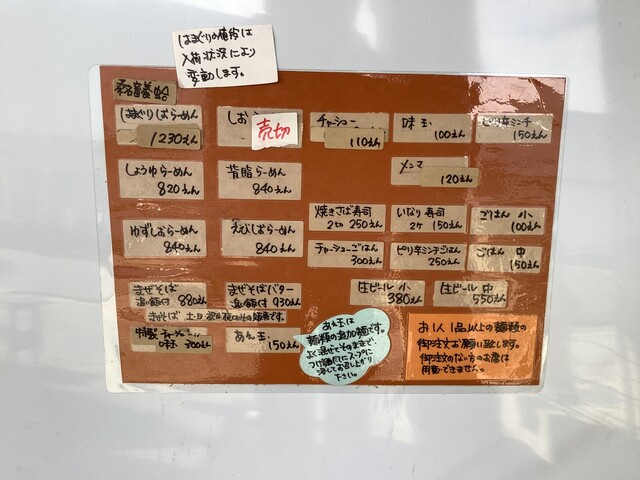 はまぐりの値段は
入荷状況により
変動します。
桑名産蛤
はまぐりしおらーめん
1230えん
しお
売切
チャーシュー
110えん
味玉
100えん
ピリ辛ミンチ
150えん
メンマ
120えん
しょうゆらーめん
820えん
背脂らーめん
840えん
ゆずしおらーめん
840えん
えびしおらーめん
840えん
焼きさば寿司
2切 250えん
いなり寿司
2ケ 150えん
ごはん 小
100えん
チャーシューごはん
300えん
ピリ辛ミンチごはん
250えん
ごはん 中
150えん
まぜそば
追い飯付 880えん
まぜそばバター
追い飯付 930えん
生ビール 小
380えん
生ビール 中
550えん
まぜそば 土日祝日夜のみの販売です。
特製
味玉 300えん
あえ玉
150えん
あえ玉は
麺類の追加麺です。
よく混ぜてそのままで、
つけ麺風にスープに
浸してお召し上がり
下さい。
お1人1品以上の麺類の
御注文お願い致します。
御注文のない方のお席は
用意できません。